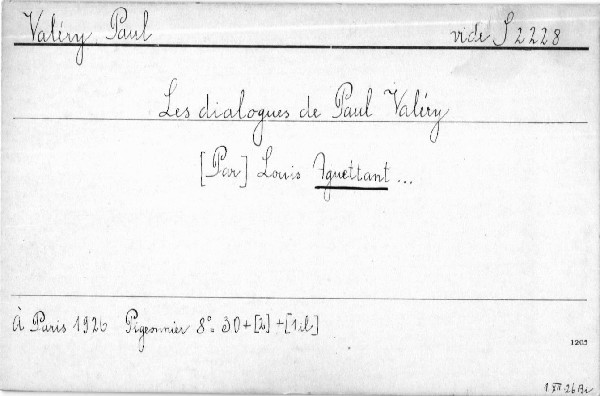 Valéry Paul vide S 2228
Les dialogues de Paul Valéry
[Par] Louis Aguettant ...
À Paris 1926 Pigeonnier 8°. 30+[2]+[1 il]
1203
1 XII 26 Br